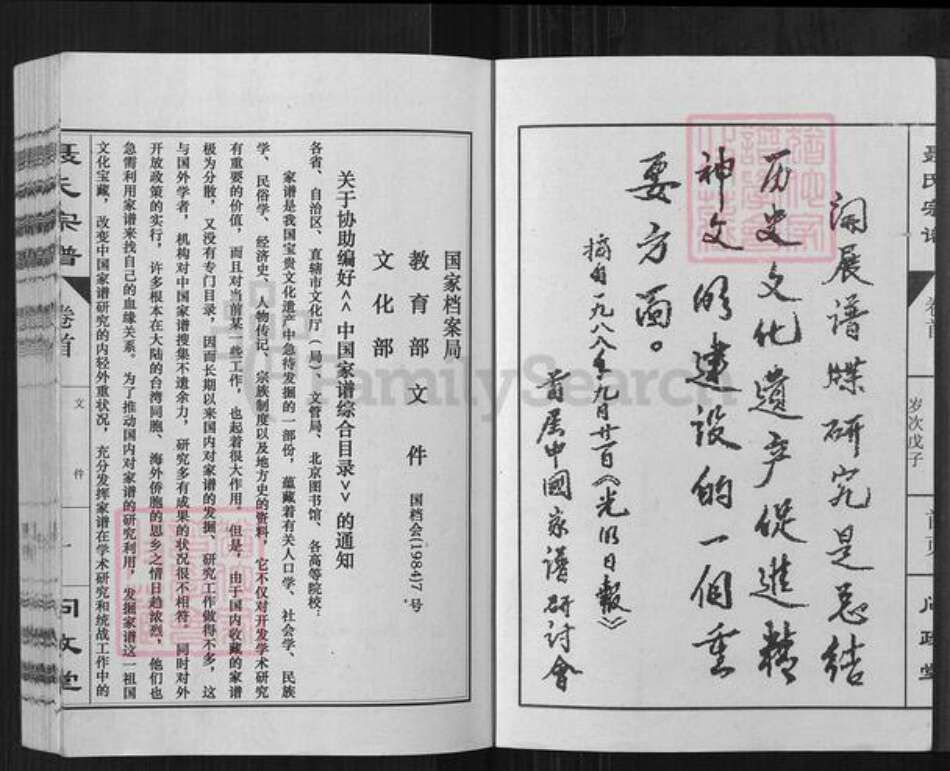 开展谱牒研究是总结
历史文化遗产促進精
神文明建设的一個重
要方面。
摘自一九八八年九月廿一日《光明日報》
首届中國家譜研討會
聂氏宗谱
卷首
岁次戊子
首页
问政堂
国家档案局
教育部文件
文化部
国档会(1984)7号
关于协助编好<<中国家谱综合目录>>的通知
各省、自治区、直辖市文化厅(局)、文管局、北京图书馆、各高等院校:
家谱是我国宝贵文化遗产中急待发掘的一部份,蕴藏着有关人口学、社会学、民族
学、民俗学、经济史、人物传记、宗族制度以及地方史的资料,它不仅对开发学术研究
有重要的价值,而且对当前某一些工作,也起着很大作用。但是,由于国内收藏的家谱
极为分散,又没有专门目录,因而长期以来国内对家谱的发掘、研究工作做得不多,这
与国外学者,机构对中国家谱搜集不遗余力,研究多有成果的状况很不相符。同时对外
开放政策的实行,许多根本在大陆的台湾同胞、海外侨胞的思乡之情日趋浓烈,他们也
急需利用家谱来找自己的血缘关系。为了推动国内对家谱的研究利用,发掘家谱这一祖国
文化宝藏,改变中国家谱研究的内轻外重状况,充分发挥家谱在学术研究和统战工作中的
聂氏宗谱
卷首
文件
一
问政堂
FamilySearch